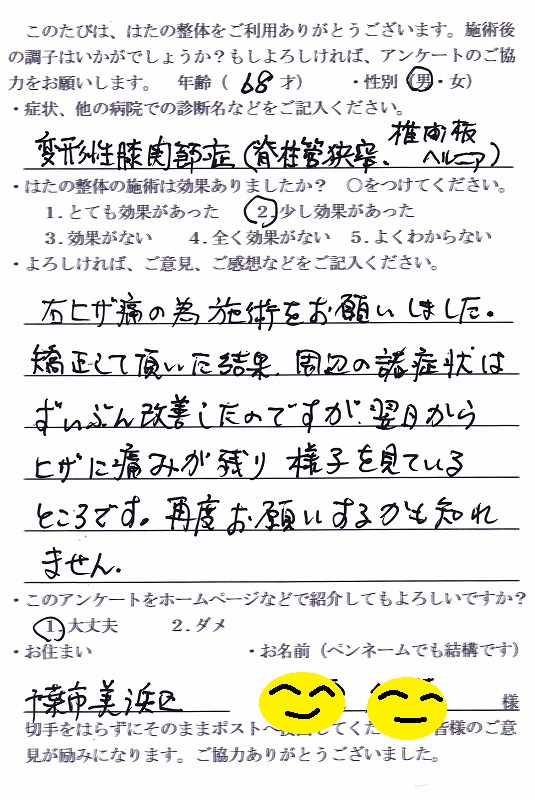 このたびは、はたの整体をご利用ありがとうございます。施術後
の調子はいかがでしょうか？もしよろしければ、アンケートのご協
力をお願いします。 年齢（ 68 才） ・性別（男・女）
・症状、他の病院での診断名などをご記入ください。
変形性膝関節症（脊柱管狭窄、椎間板ヘルニア）
・はたの整体の施術は効果ありましたか？ ○をつけてください。
1．とても効果があった 2．少し効果があった
3．効果がない 4．全く効果がない 5．よくわからない
・よろしければ、ご意見、ご感想などをご記入ください。
右ヒザ痛の為施術をお願いしました。
矯正して頂いた結果、周辺の諸症状は
ずいぶん改善したのですが、翌日から
ヒザに痛みが残り様子を見ている
ところです。再度お願いするかも知れ
ません。
・このアンケートをホームページなどで紹介してもよろしいですか？
1．大丈夫 2．ダメ
・お住まい ・お名前（ペンネームでも結構です）
千葉市美浜区 様
切手をはらずにそのままポストへ してくだ 皆様のご意
見が励みになります。ご協力ありがとうございました。